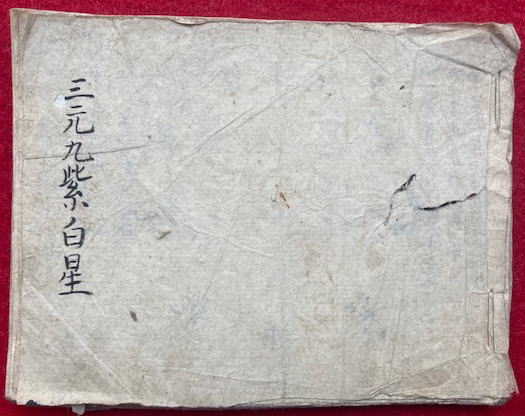 三元九紫白星